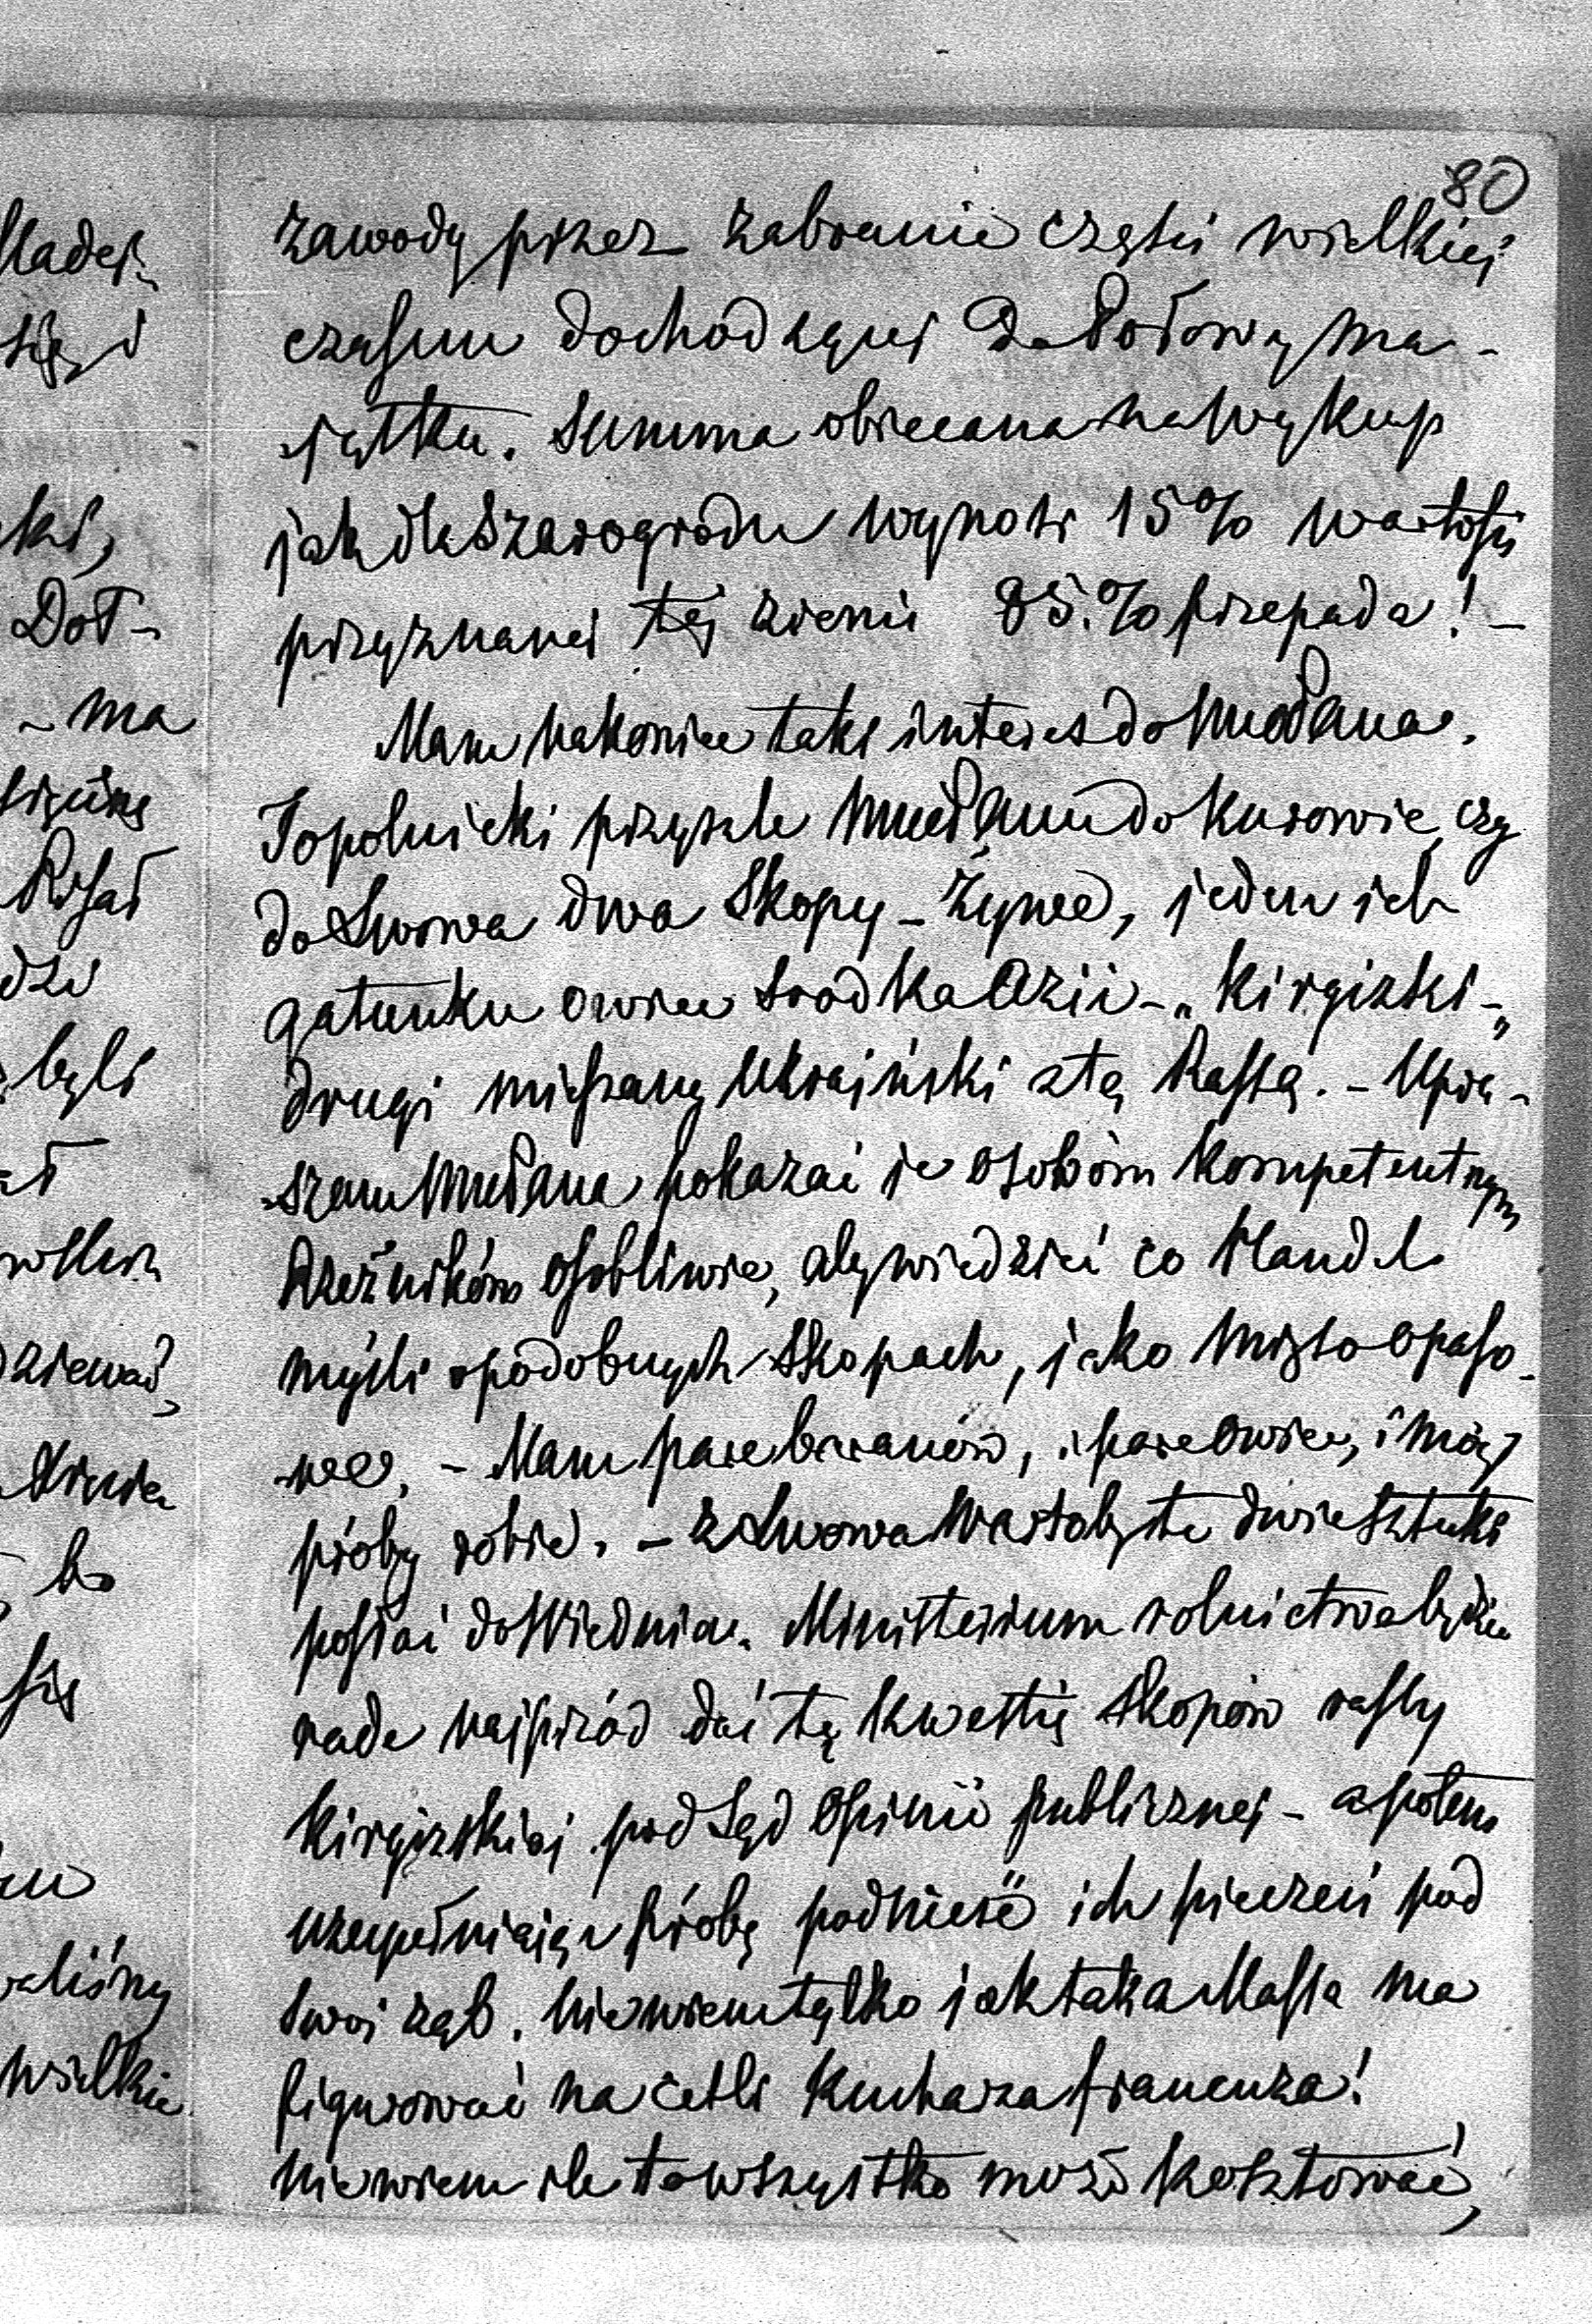 80
zawody przez zabranie części wielkiej
czasem dochodzącej do Połowy ma-
jątku. Summa obiecana na wykup
jak dla Szarogrodu wynosi 15% wartości
przyznanej tej ziemi 85.% przepada! -
Mam nakoniec taki interes do
Topolnicki przyszle do Kurowie, czy
do Lwowa dwa Skopy - Żywe, jeden ich
gatunku owiec środka Azii - "Kirgizki -"
drugi mieszany Ukraiński z tą Rassą. - Upra-
szam pokazać je osobom kompetentnym
Rzeźników osobliwie, aby wiedzieć co Handel
myśli o podobnych Skopach, jako mięso opaso-
we. - Mam parę baranów, i parę owiec, i mogę
próby robić. - z Lwowa wartoby te dwie sztuki
posłać do Wiednia. Ministerium rolnictwa będzie
rade najprzód dać tę kwestię Skopów rassy
Kirgizskiej pod Sąd Opinii publicznej - a potem
uzupełniając próbę podnieść ich pieczeń pod
swój ząb. Nie wiem tylko jak taka Massa ma
figurować na celi Kucharza francuza!
nie wiem ile to wszystko może kosztować,
Doł-
- ma
byli
wielkie